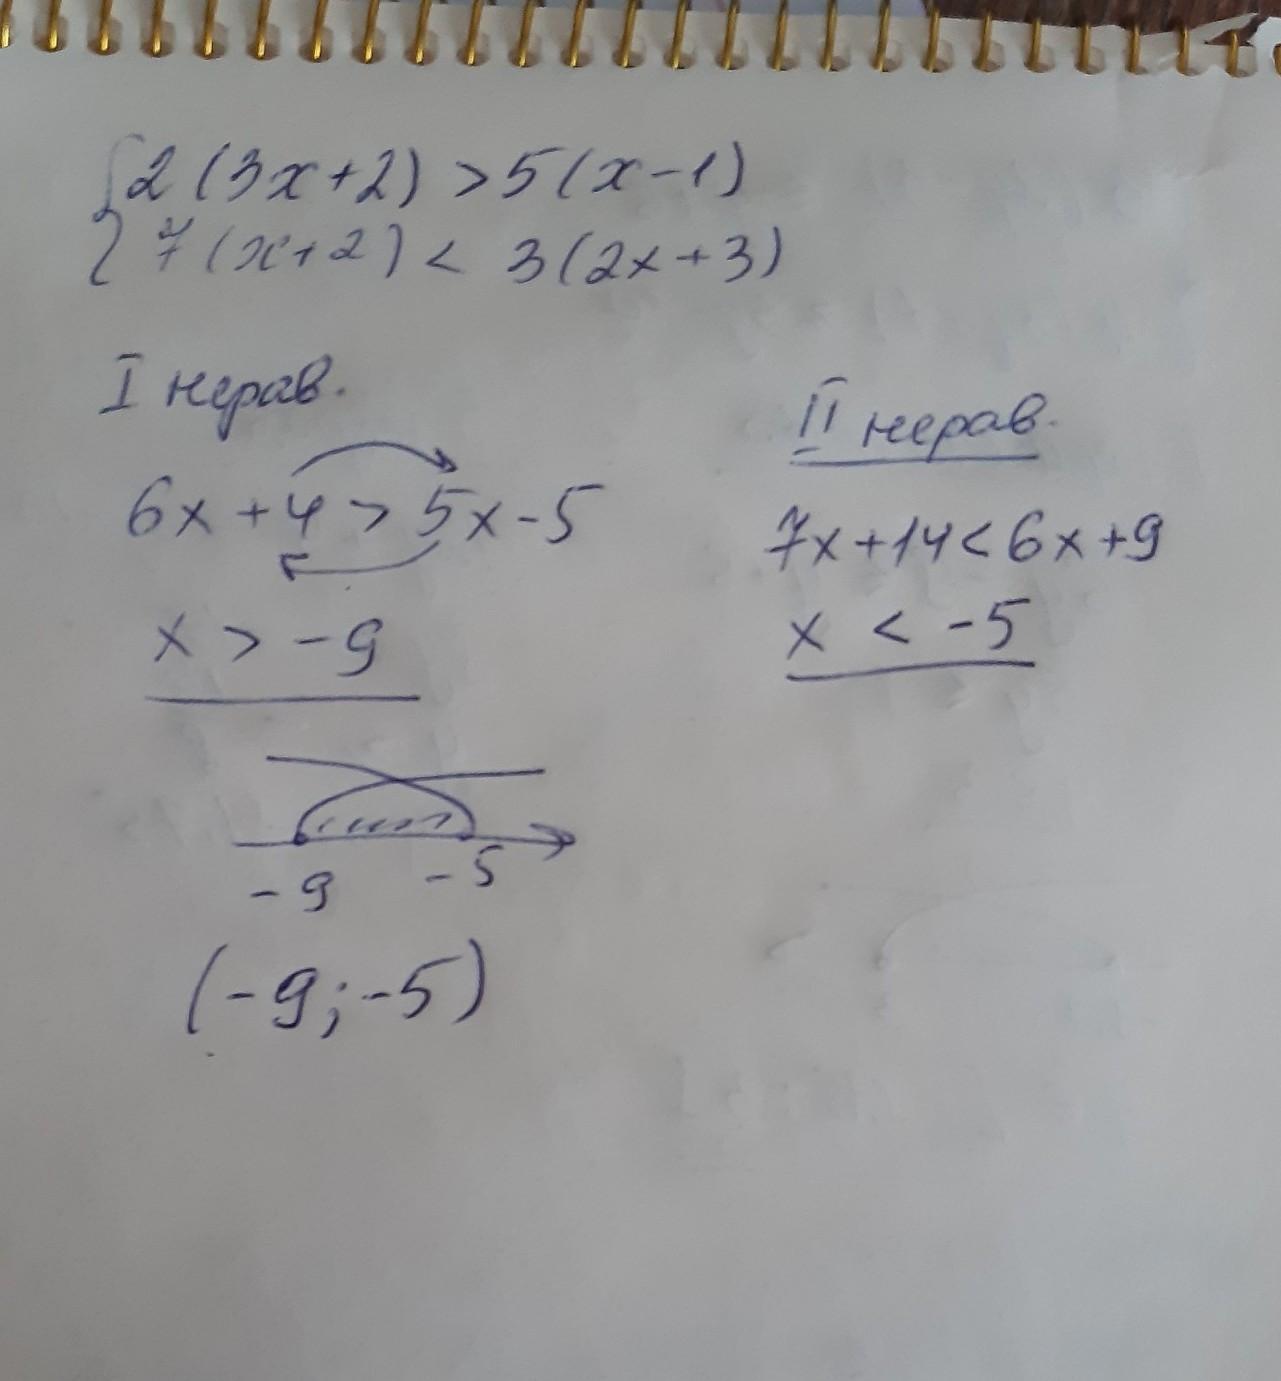 {2(3x+2) > 5(x-1)
7(x+2) < 3(2x+3)
I нерав.
6x+4 > 5x-5
x > -9
II нерав.
7x+14<6x+9
x < -5
-9 -5
(-9; -5)